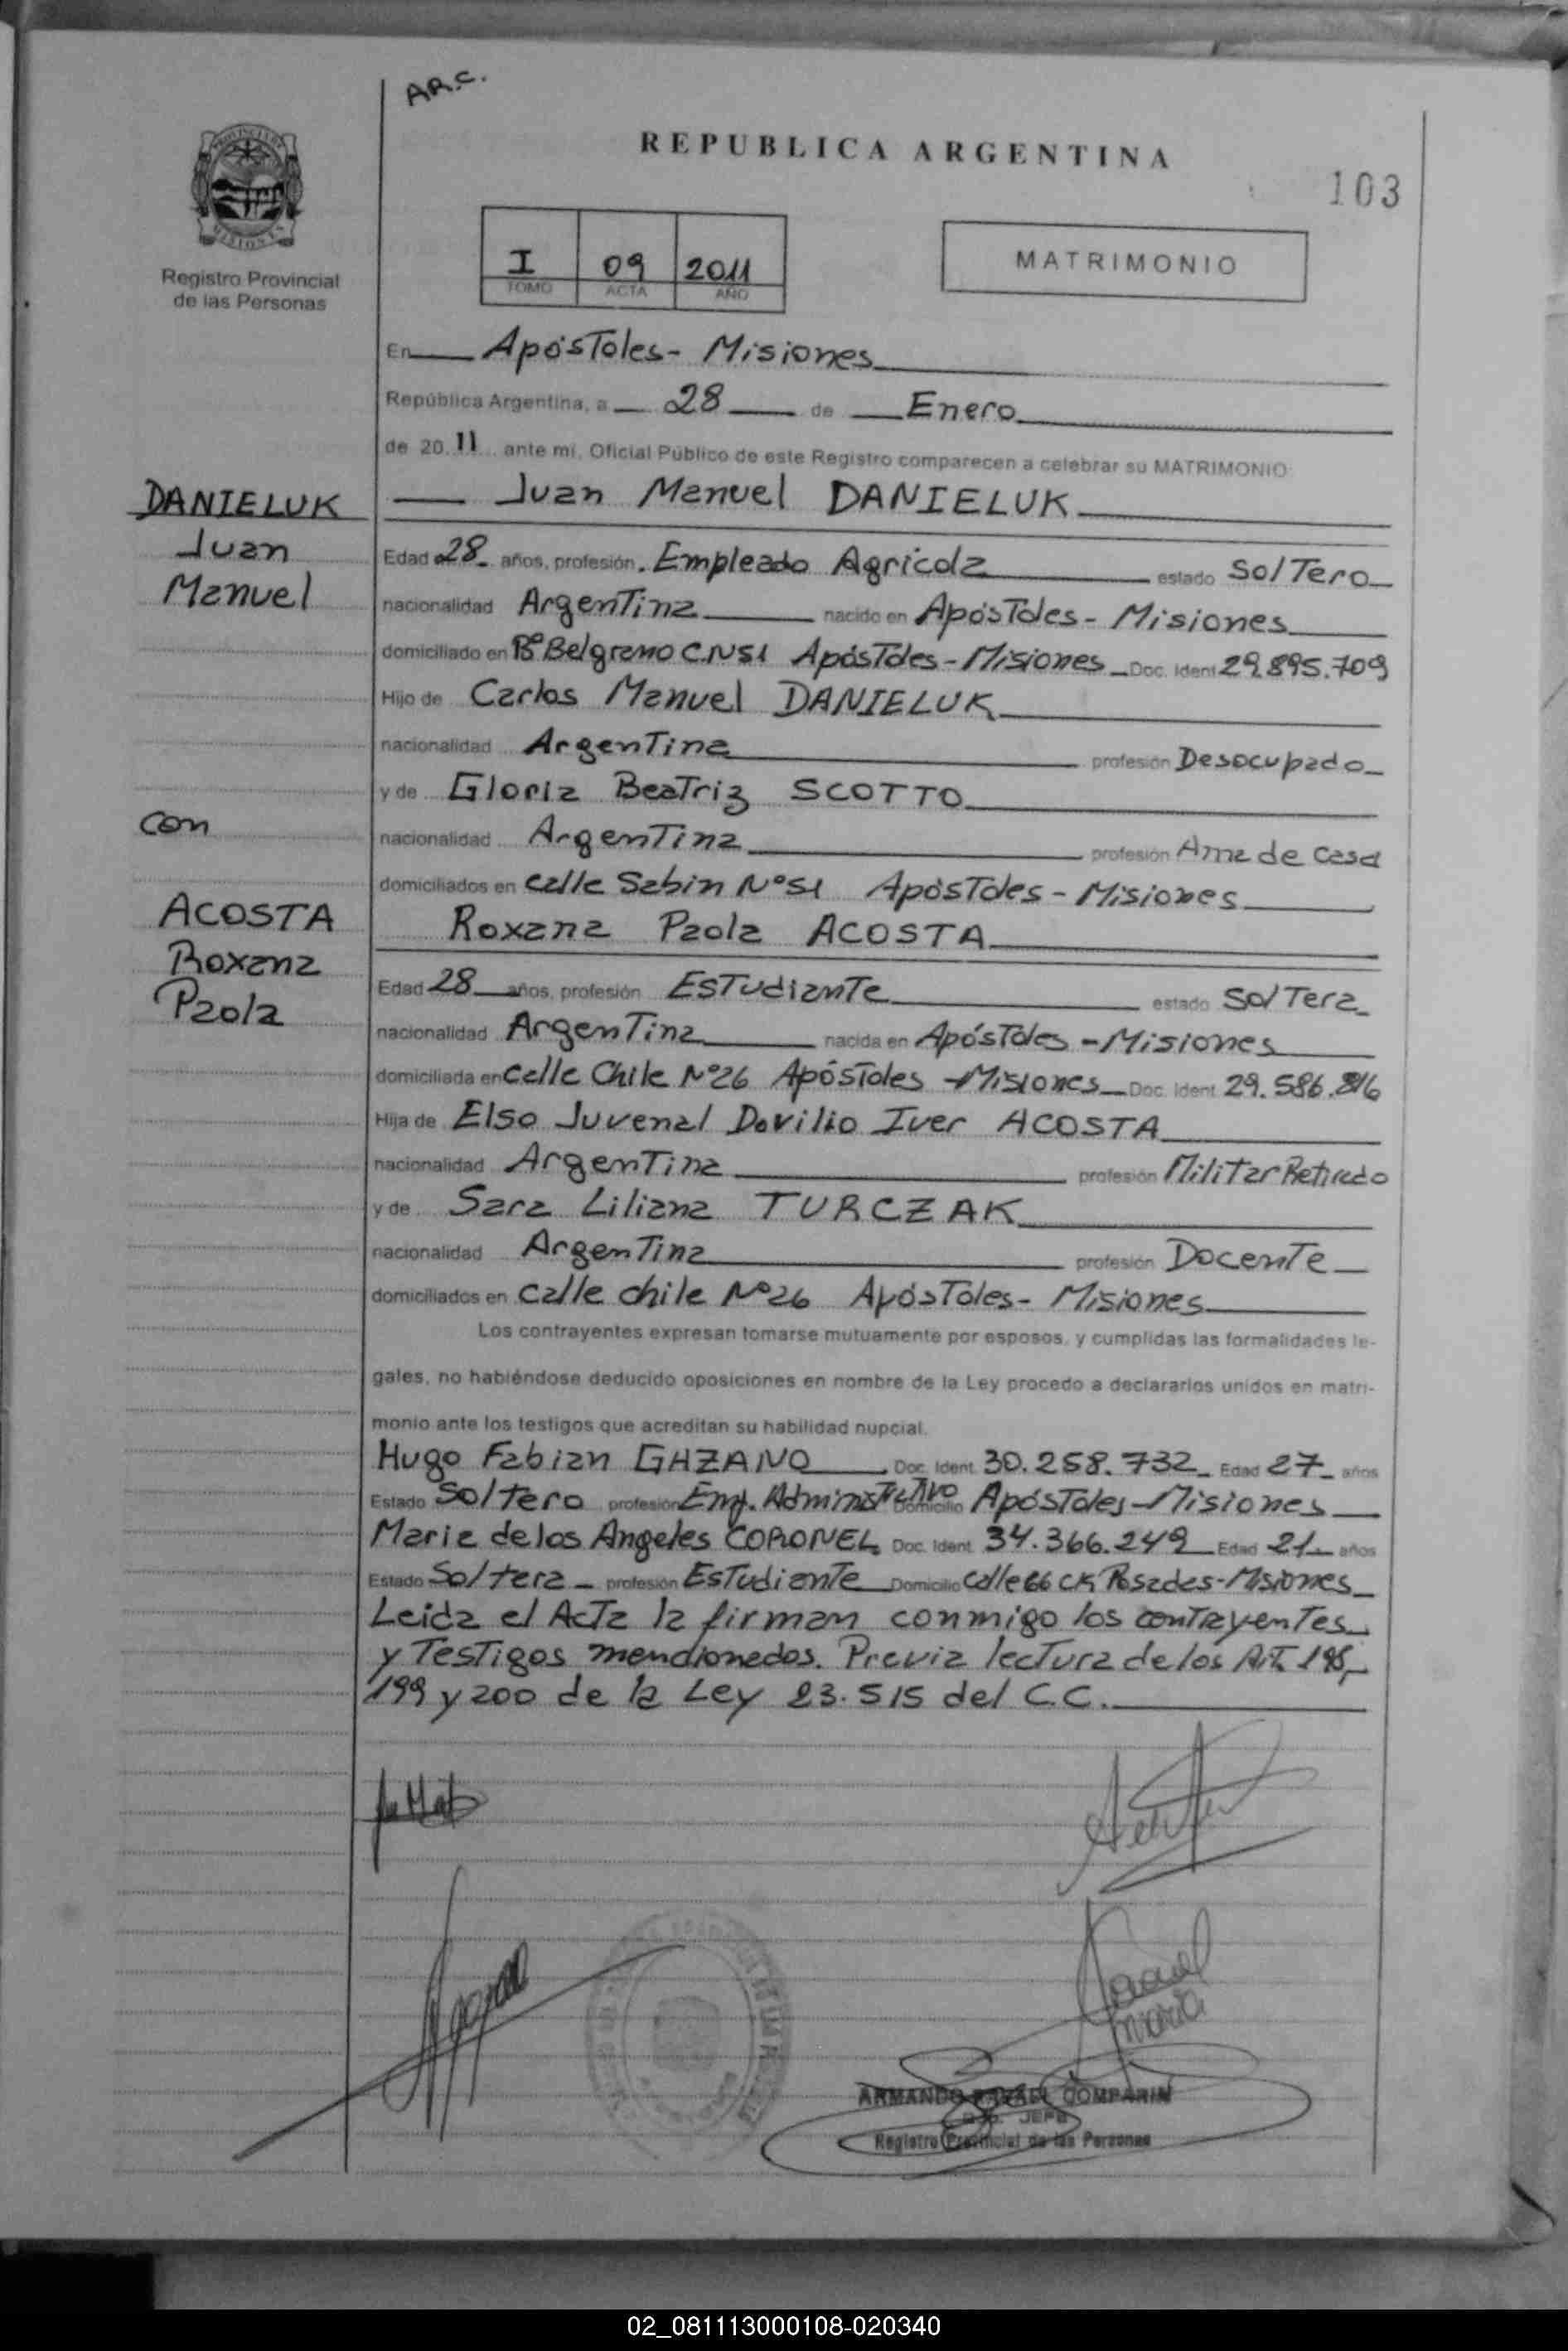 AR.C.
REPUBLICA ARGENTINA
103
PROVINCIA DE
MISIONES
Registro Provincial
de las Personas
I 09 2011
TOMO ACTA AÑO
MATRIMONIO
En Apóstoles- Misiones
República Argentina, a 28 de Enero
de 2011 ante mí, Oficial Público de este Registro comparecen a celebrar su MATRIMONIO
DANIELUK
Juan
Manuel
con
ACOSTA
Roxana
Paola
Juan Manuel DANIELUK
Edad 28 años, profesión. Empleado Agricola estado Soltero
nacionalidad Argentina nacido en Apóstoles- Misiones
domiciliado en Bº Belgrano C.N51 Apóstoles-Misiones Doc. Ident 29.895.709
Hijo de Carlos Manuel DANIELUK
nacionalidad Argentina profesión Desocupado
y de Gloria Beatriz SCOTTO
nacionalidad Argentina profesión Ama de casa
domiciliados en calle Sabin Nº51 Apóstoles- Misiones
Roxana Paola ACOSTA
Edad 28 años, profesión Estudiante estado Soltera
nacionalidad Argentina nacida en Apóstoles -Misiones
domiciliada en Calle Chile Nº26 Apóstoles -Misiones Doc. Ident 29.586.816
Hija de Elso Juvenal Dovilio Iver ACOSTA
nacionalidad Argentina profesión Militar Retirado
y de Sara Liliana TURCZAK
nacionalidad Argentina profesión Docente
domiciliados en calle chile Nº26 Apóstoles- Misiones
Los contrayentes expresan tomarse mutuamente por esposos, y cumplidas las formalidades le-
gales, no habiéndose deducido oposiciones en nombre de la Ley procedo a declararlos unidos en matri-
monio ante los testigos que acreditan su habilidad nupcial.
Hugo Fabian GAZANO Doc. Ident. 30.258.732 Edad 27 años
Estado Soltero profesión Emp. Administrativo Domicilio Apóstoles-Misiones
Maria de los Angeles CORONEL Doc. Ident. 34.366.249 Edad 21 años
Estado Soltera profesión Estudiante Domicilio calle 66 Posadas-Misiones
Leida el Acta la firman conmigo los contrayentes
y Testigos mencionados. Previa lectura de los Art. 198,
199 y 200 de la Ley 23.515 del C.C.
Coronel
Maria
ARMANDO RAFAEL COMPARIN
JEFE
Registro Provincial de las Personas
02_081113000108-020340